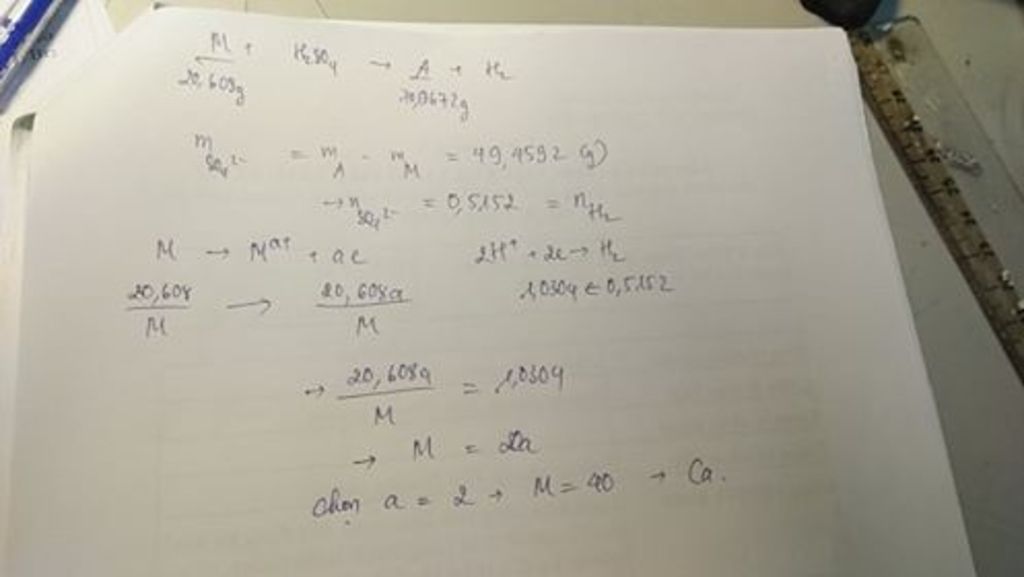 M + H₂SO₄ → A + H₂
20,608g 70,0672g
m SO₄²⁻ = m A - m M = 49,4592 (g)
→ n SO₄²⁻ = 0,5152 = n H₂
M → Mᵃ⁺ + ae 2H⁺ + 2e → H₂
20,608/M → 20,608a/M 1,0304 ← 0,5152
→ 20,608a/M = 1,0304
→ M = 20a
Chọn a = 2 → M = 40 → Ca.